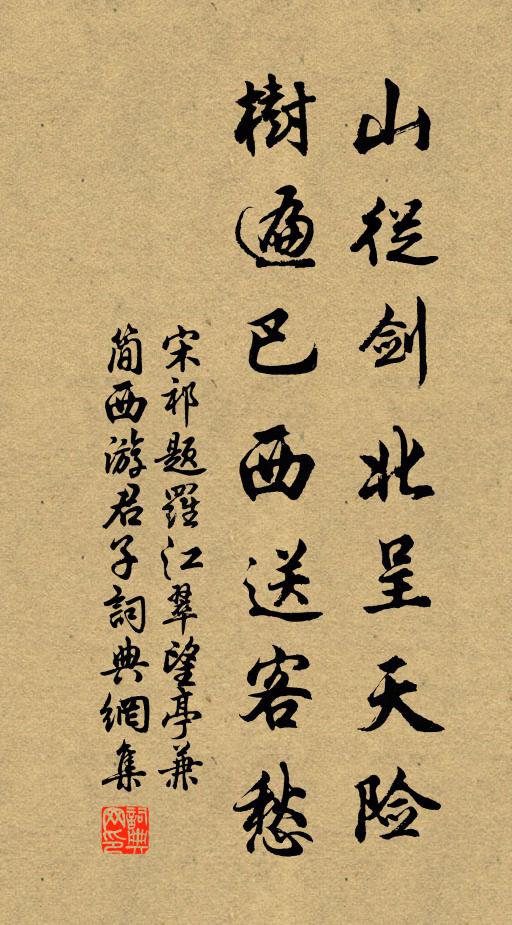 山從剑北呈天险
樹遍巴西送客愁
宋祁题羅江翠望亭兼
简西游君子詞典網集
詞典网印